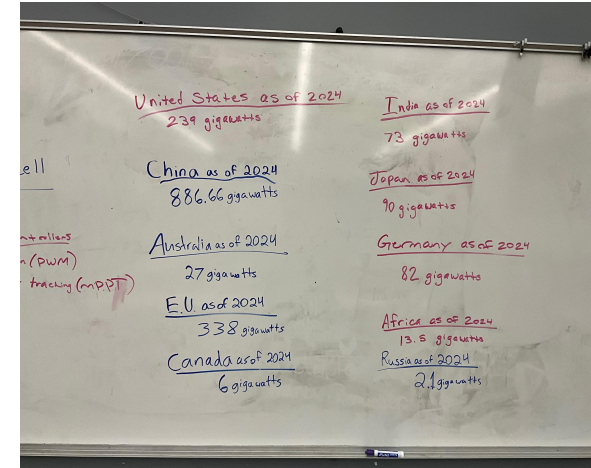 United States as of 2024
239 gigawatts
China as of 2024
886.66 gigawatts
Australia as of 2024
27 gigawatts
E.U. as of 2024
338 gigawatts
Canada as of 2024
6 gigawatts
India as of 2024
73 gigawatts
Japan as of 2024
90 gigawatts
Germany as of 2024
82 gigawatts
Africa as of 2024
13.5 gigawatts
Russia as of 2024
2.1 gigawatts
ell
ntrollers
n (PWM)
tracking (MPPT)